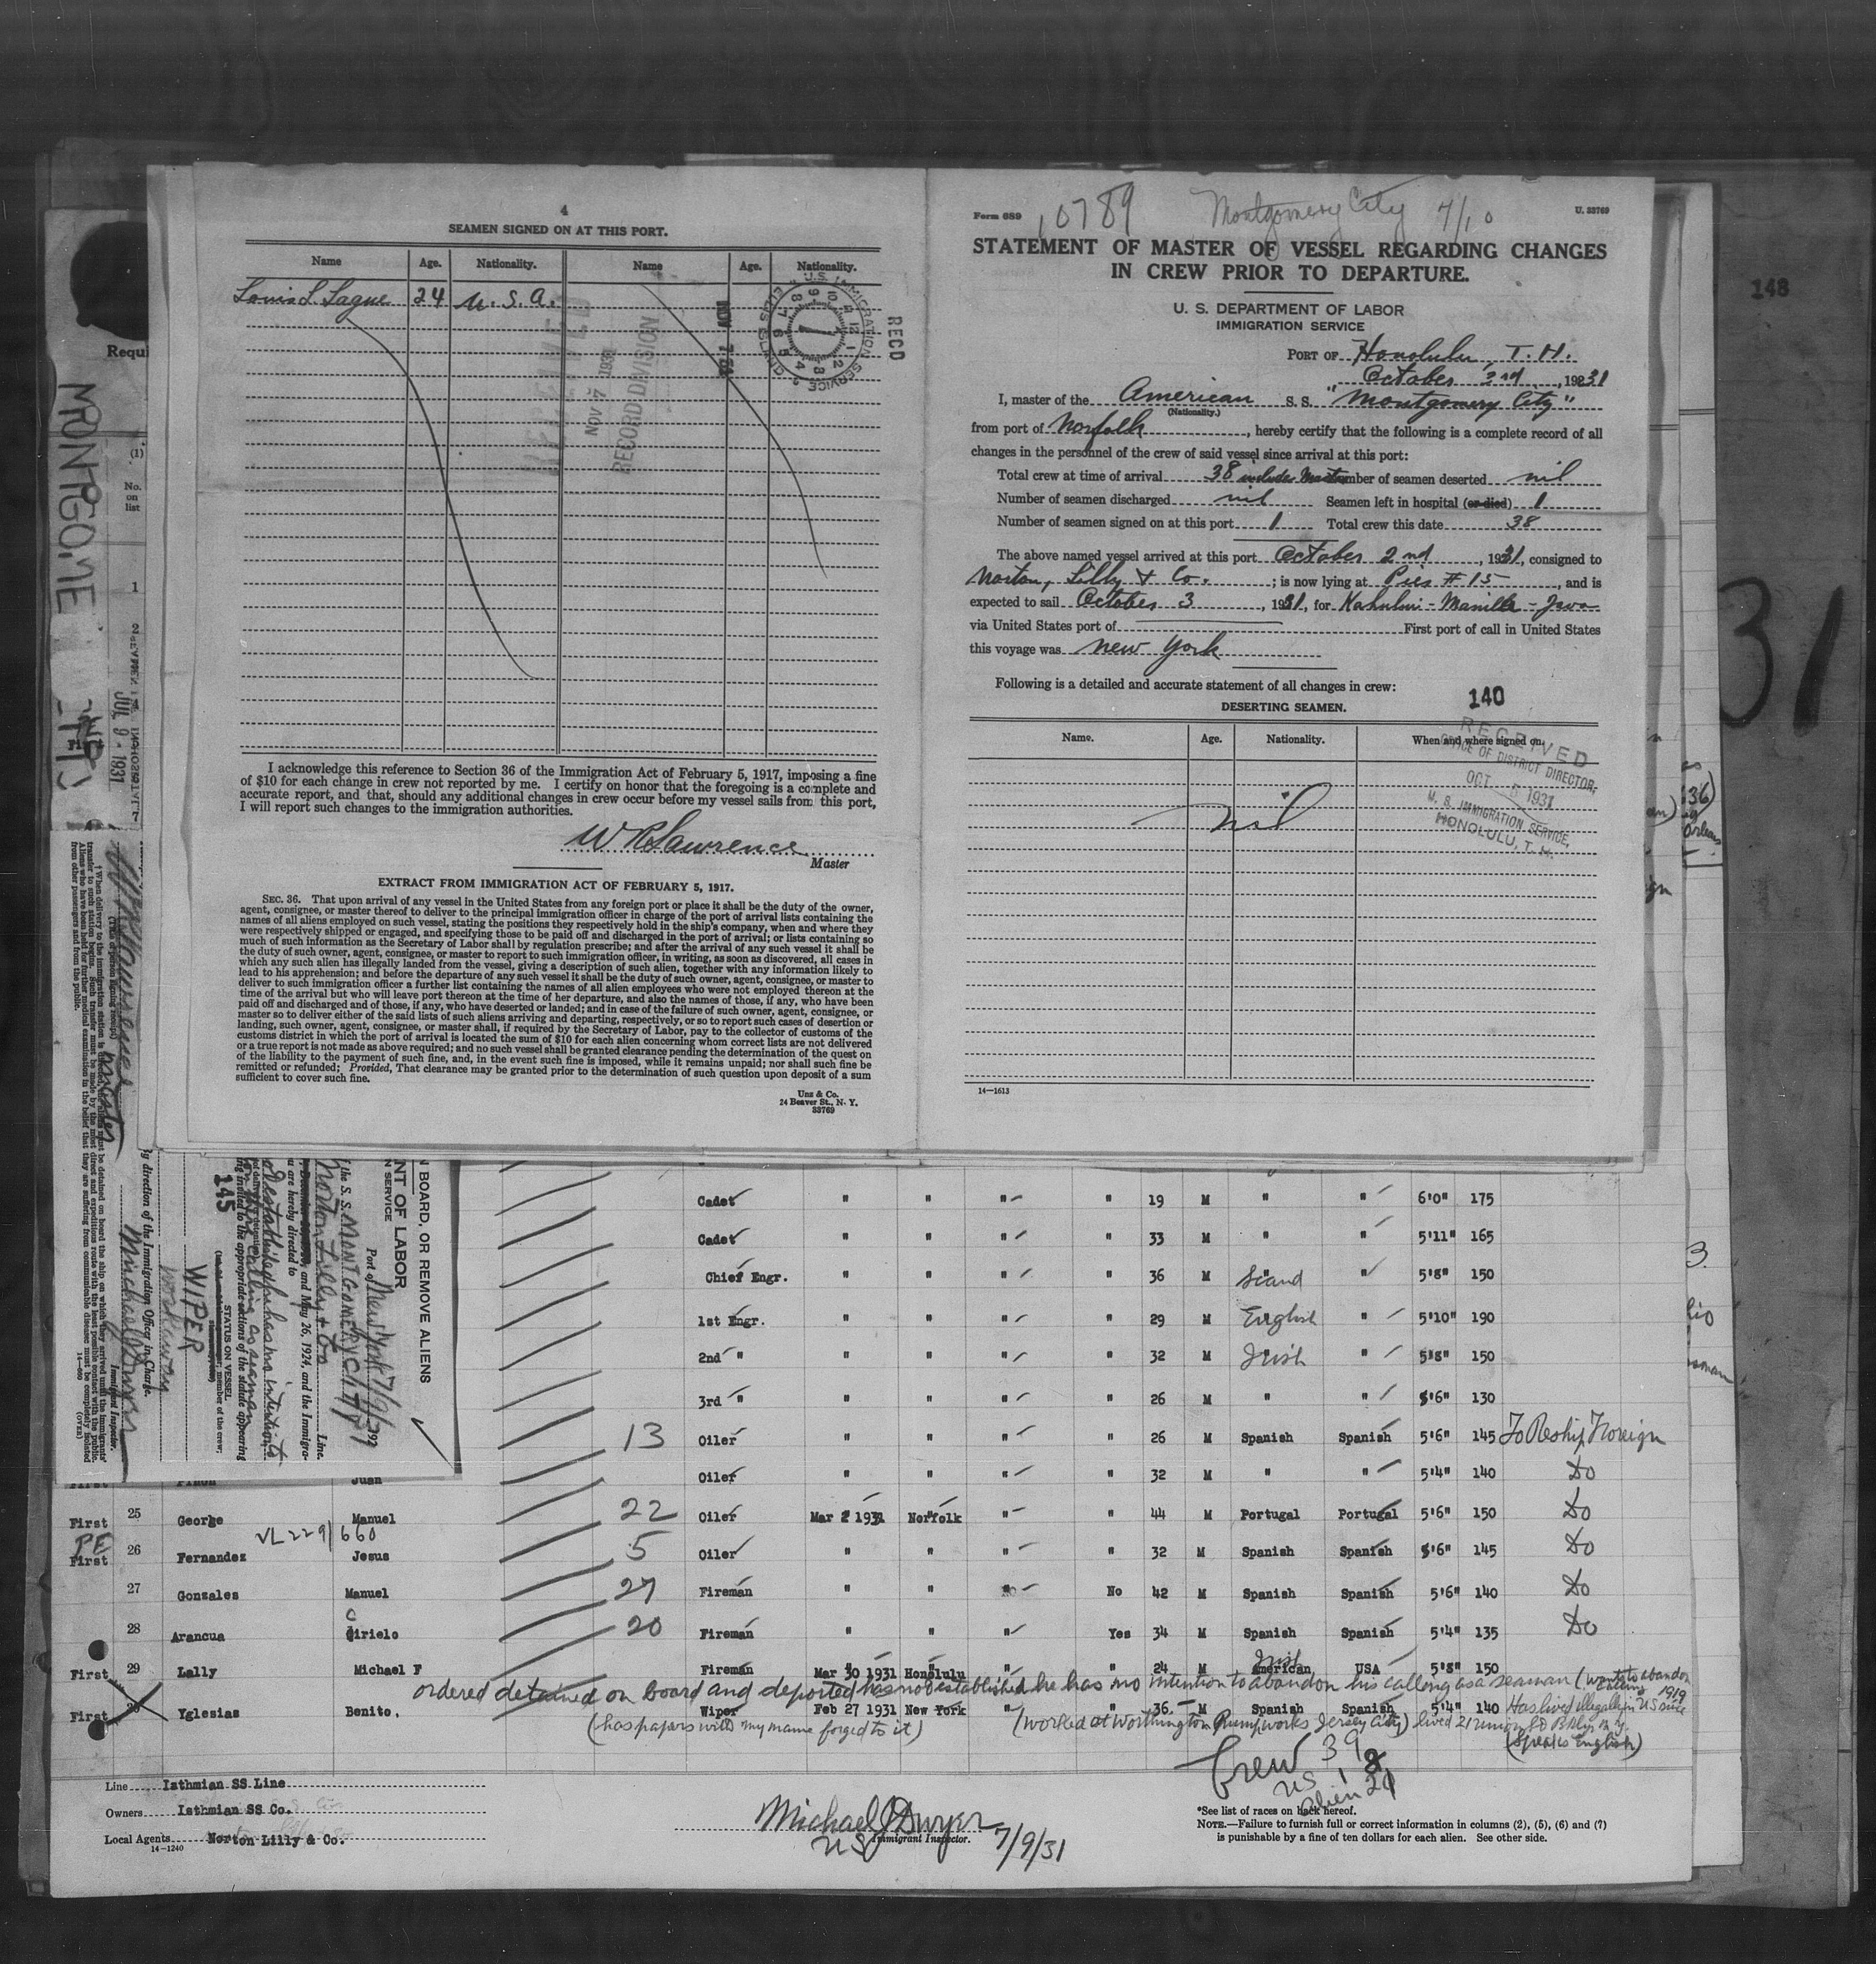 4
SEAMEN SIGNED ON AT THIS PORT.
Name Age. Nationality. Name Age. Nationality.
Louis L. Lague 24 U. S. A.
U.S. IMMIGRATION SERVICE
ELLIS ISLAND
RECD
NOV 7
RECEIVED
NOV 7 1931
RECORD DIVISION
I acknowledge this reference to Section 36 of the Immigration Act of February 5, 1917, imposing a fine
of $10 for each change in crew not reported by me. I certify on honor that the foregoing is a complete and
accurate report, and that, should any additional changes in crew occur before my vessel sails from this port,
I will report such changes to the immigration authorities.
W R Lawrence
Master
EXTRACT FROM IMMIGRATION ACT OF FEBRUARY 5, 1917.
SEC. 36. That upon arrival of any vessel in the United States from any foreign port or place it shall be the duty of the owner,
agent, consignee, or master thereof to deliver to the principal immigration officer in charge of the port of arrival lists containing the
names of all aliens employed on such vessel, stating the positions they respectively hold in the ship's company, when and where they
were respectively shipped or engaged, and specifying those to be paid off and discharged in the port of arrival; or lists containing so
much of such information as the Secretary of Labor shall by regulation prescribe; and after the arrival of any such vessel it shall be
the duty of such owner, agent, consignee, or master to report to such immigration officer, in writing, as soon as discovered, all cases in
which any such alien has illegally landed from the vessel, giving a description of such alien, together with any information likely to
lead to his apprehension; and before the departure of any such vessel it shall be the duty of such owner, agent, consignee, or master to
deliver to such immigration officer a further list containing the names of all alien employees who were not employed thereon at the
time of the arrival but who will leave port thereon at the time of her departure, and also the names of those, if any, who have been
paid off and discharged and of those, if any, who have deserted or landed; and in case of the failure of such owner, agent, consignee, or
master so to deliver either of the said lists of such aliens arriving and departing, respectively, or so to report such cases of desertion or
landing, such owner, agent, consignee, or master shall, if required by the Secretary of Labor, pay to the collector of customs of the
customs district in which the port of arrival is located the sum of $10 for each alien concerning whom correct lists are not delivered
or a true report is not made as above required; and no such vessel shall be granted clearance pending the determination of the quest on
of the liability to the payment of such fine, and, in the event such fine is imposed, while it remains unpaid; nor shall such fine be
remitted or refunded; Provided, That clearance may be granted prior to the determination of such question upon deposit of a sum
sufficient to cover such fine.
Unz & Co.
24 Beaver St., N. Y.
33769
Form 689
10789 Montgomery City 7/10
U. 33769
STATEMENT OF MASTER OF VESSEL REGARDING CHANGES
IN CREW PRIOR TO DEPARTURE.
U. S. DEPARTMENT OF LABOR
IMMIGRATION SERVICE
PORT OF Honolulu, T. H.
October 3rd, 1931
I, master of the American S. S. "Montgomery City"
(Nationality.)
from port of Norfolk, hereby certify that the following is a complete record of all
changes in the personnel of the crew of said vessel since arrival at this port:
Total crew at time of arrival 38 includes Master Number of seamen deserted nil
Number of seamen discharged nil Seamen left in hospital (or died) 1
Number of seamen signed on at this port 1 Total crew this date 38
The above named vessel arrived at this port October 2nd, 1931, consigned to
Norton, Lilly & Co. ; is now lying at Pier # 15, and is
expected to sail October 3, 1931, for Kahului - Manilla - Java
via United States port of First port of call in United States
this voyage was New York
Following is a detailed and accurate statement of all changes in crew:
140
DESERTING SEAMEN.
Name. Age. Nationality. When and where signed on.
nil
RECEIVED
OFFICE OF DISTRICT DIRECTOR,
OCT 5 1931
U. S. IMMIGRATION SERVICE,
HONOLULU, T. H.
14—1613
148
31
Requi
(1)
No.
on
list
1
JUL 9 - 1931
BOARD, OR REMOVE ALIENS
NT OF LABOR
N SERVICE
Port of New York 7/9/31
the S. S. MONTGOMERY CITY
Norton Lilly & Co Line.
and May 26, 1924, and the Immigra-
are hereby directed to
145
STATUS ON VESSEL
WIPER
workaway
By direction of the Immigration Officer in Charge.
Michael J Dwyer
Immigrant Inspector.
(OVER)
Cadet " " " " 19 M " " 6'0" 175
Cadet " " " " 33 M " " 5'11" 165
Chief Engr. " " " " 36 M Scand " 5'8" 150
1st Engr. " " " " 29 M English " 5'10" 190
2nd " " " " " 32 M Irish " 5'8" 150
3rd " " " " " 26 M " " 5'6" 130
13 Oiler " " " " 26 M Spanish Spanish 5'6" 145 To Reship Foreign
Juan Oiler " " " " 32 M " " 5'4" 140 Do
First 25 George Manuel 22 Oiler Mar 2 1931 Norfolk " " 44 M Portugal Portugal 5'6" 150 Do
VL 229/660
PE
First 26 Fernandez Jesus 5 Oiler " " " " 32 M Spanish Spanish 5'6" 145 Do
27 Gonzales Manuel 27 Fireman " " No No 42 M Spanish Spanish 5'6" 140 Do
28 Arancua Cirielo 20 Fireman " " " Yes 34 M Spanish Spanish 5'4" 135 Do
First 29 Lally Michael F Fireman Mar 30 1931 Honolulu " " 24 M Irish American USA 5'8" 150
ordered detained on board and deported has not established he has no intention to abandon his calling as a seaman (wants to abandon calling
First 30 Yglesias Benito. Wiper Feb 27 1931 New York " " 36 M Spanish Spanish 5'4" 140 Has lived illegally in US since 1919
(has papers with my name forged to it) (worked at Worthington Pump works Jersey City) lived 21 Union St Bklyn N.Y.
(Speaks English)
Crew 39
US 18
Alien 21
Line Isthmian SS Line
Owners Isthmian SS Co.
Local Agents Norton Lilly & Co.
14—1240
Michael J Dwyer
US Immigrant Inspector. 7/9/31
*See list of races on back hereof.
NOTE.—Failure to furnish full or correct information in columns (2), (5), (6) and (7)
is punishable by a fine of ten dollars for each alien. See other side.